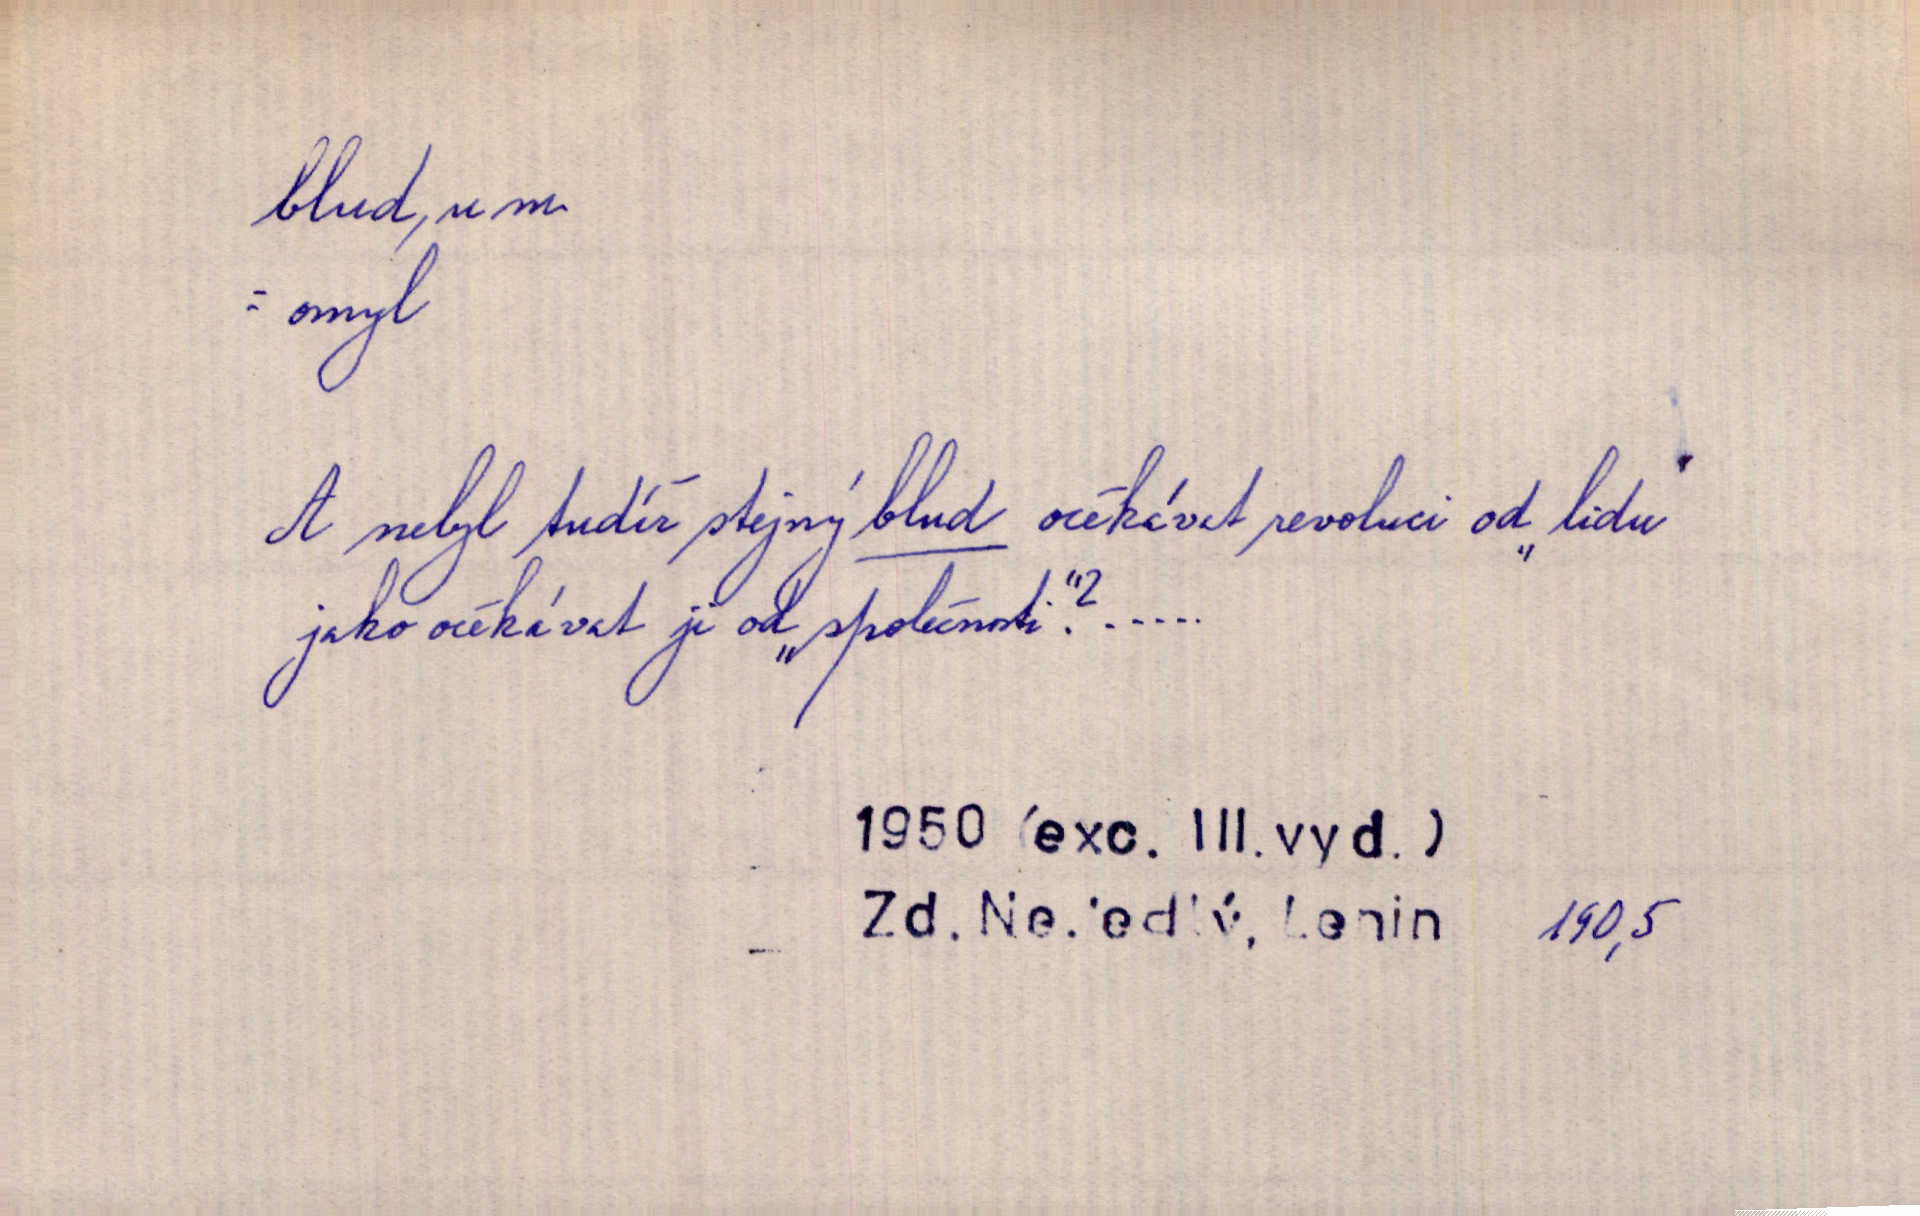 blud, u m
= omyl
A nebyl tudíž stejný blud očekávat revoluci od „lidu"
jako očekávat ji od „společnosti."? .....
1950 (exc. III. vyd.)
Zd. Nejedlý, Lenin 190,5